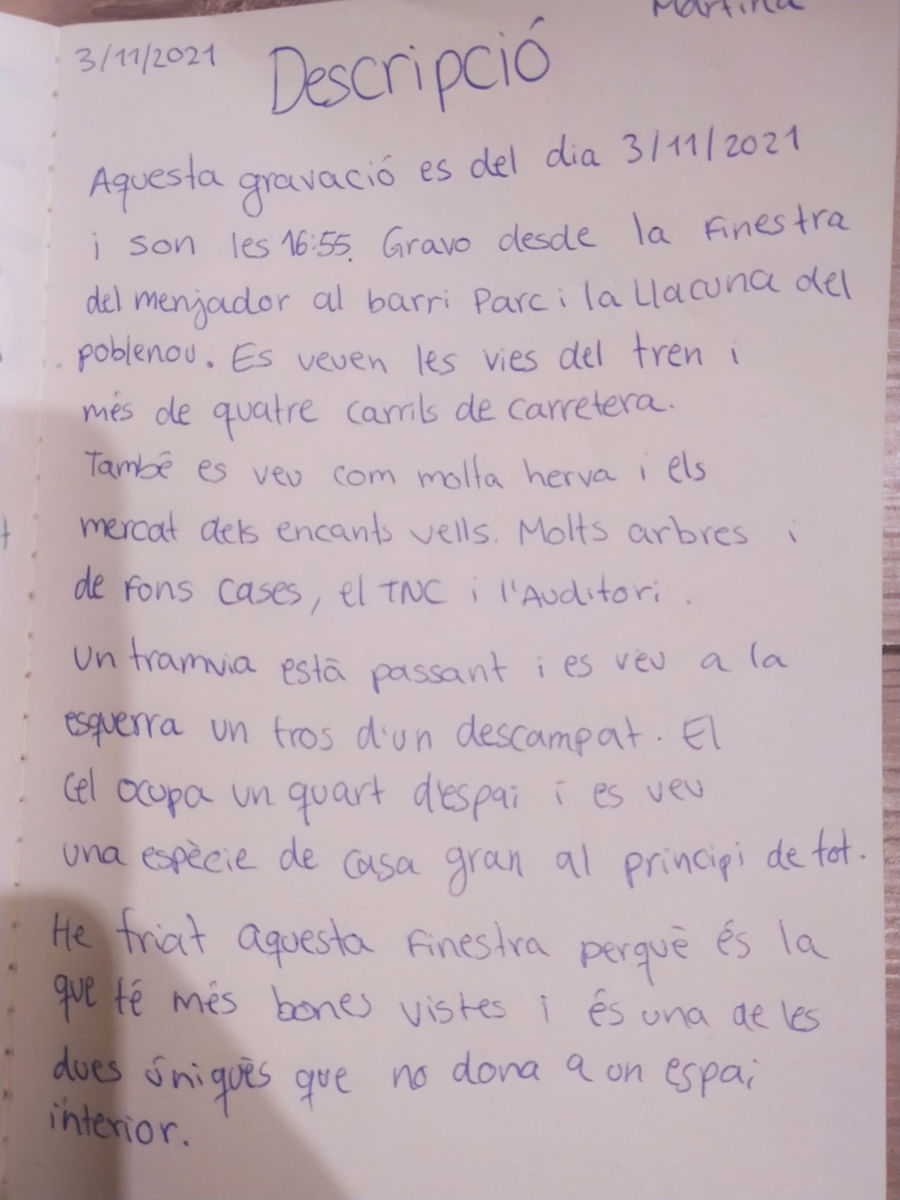 Martina
3/11/2021
Descripció
Aquesta gravació es del dia 3/11/2021
i son les 16:55. Gravo desde la finestra
del menjador al barri Parc i la Llacuna del
poblenou. Es veuen les vies del tren i
més de quatre carrils de carretera.
També es veu com molta herva i els
mercat dels encants vells. Molts arbres i
de fons cases, el TNC i l'Auditori.
Un tramvia està passant i es veu a la
esquerra un tros d'un descampat. El
cel ocupa un quart d'espai i es veu
una espècie de casa gran al principi de tot.
He triat aquesta finestra perquè és la
que té més bones vistes i és una de les
dues úniques que no dona a un espai
interior.